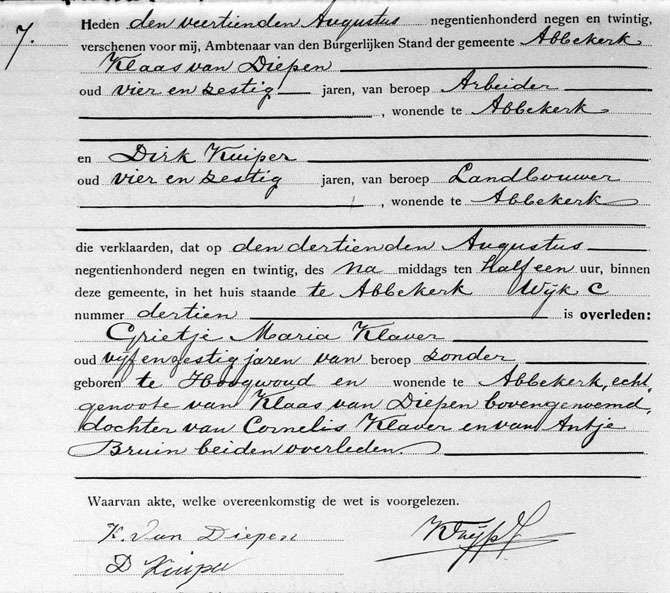 7.
Heden den veertienden Augustus negentienhonderd negen en twintig,
verschenen voor mij, Ambtenaar van den Burgerlijken Stand der gemeente Abbekerk
Klaas van Diepen
oud vier en zestig jaren, van beroep Arbeider
, wonende te Abbekerk
en Dirk Kuiper
oud vier en zestig jaren, van beroep Landbouwer
, wonende te Abbekerk
die verklaarden, dat op den dertienden Augustus
negentienhonderd negen en twintig, des na middags ten half een uur, binnen
deze gemeente, in het huis staande te Abbekerk Wijk C
nummer dertien is overleden:
Grietje Maria Klaver
oud vijf en zestig jaren van beroep zonder
geboren te Hoogwoud en wonende te Abbekerk, echt
genoote van Klaas van Diepen bovengenoemd,
dochter van Cornelis Klaver en van Antje
Bruin beiden overleden.
Waarvan akte, welke overeenkomstig de wet is voorgelezen.
K. Van Diepen
D Kuiper